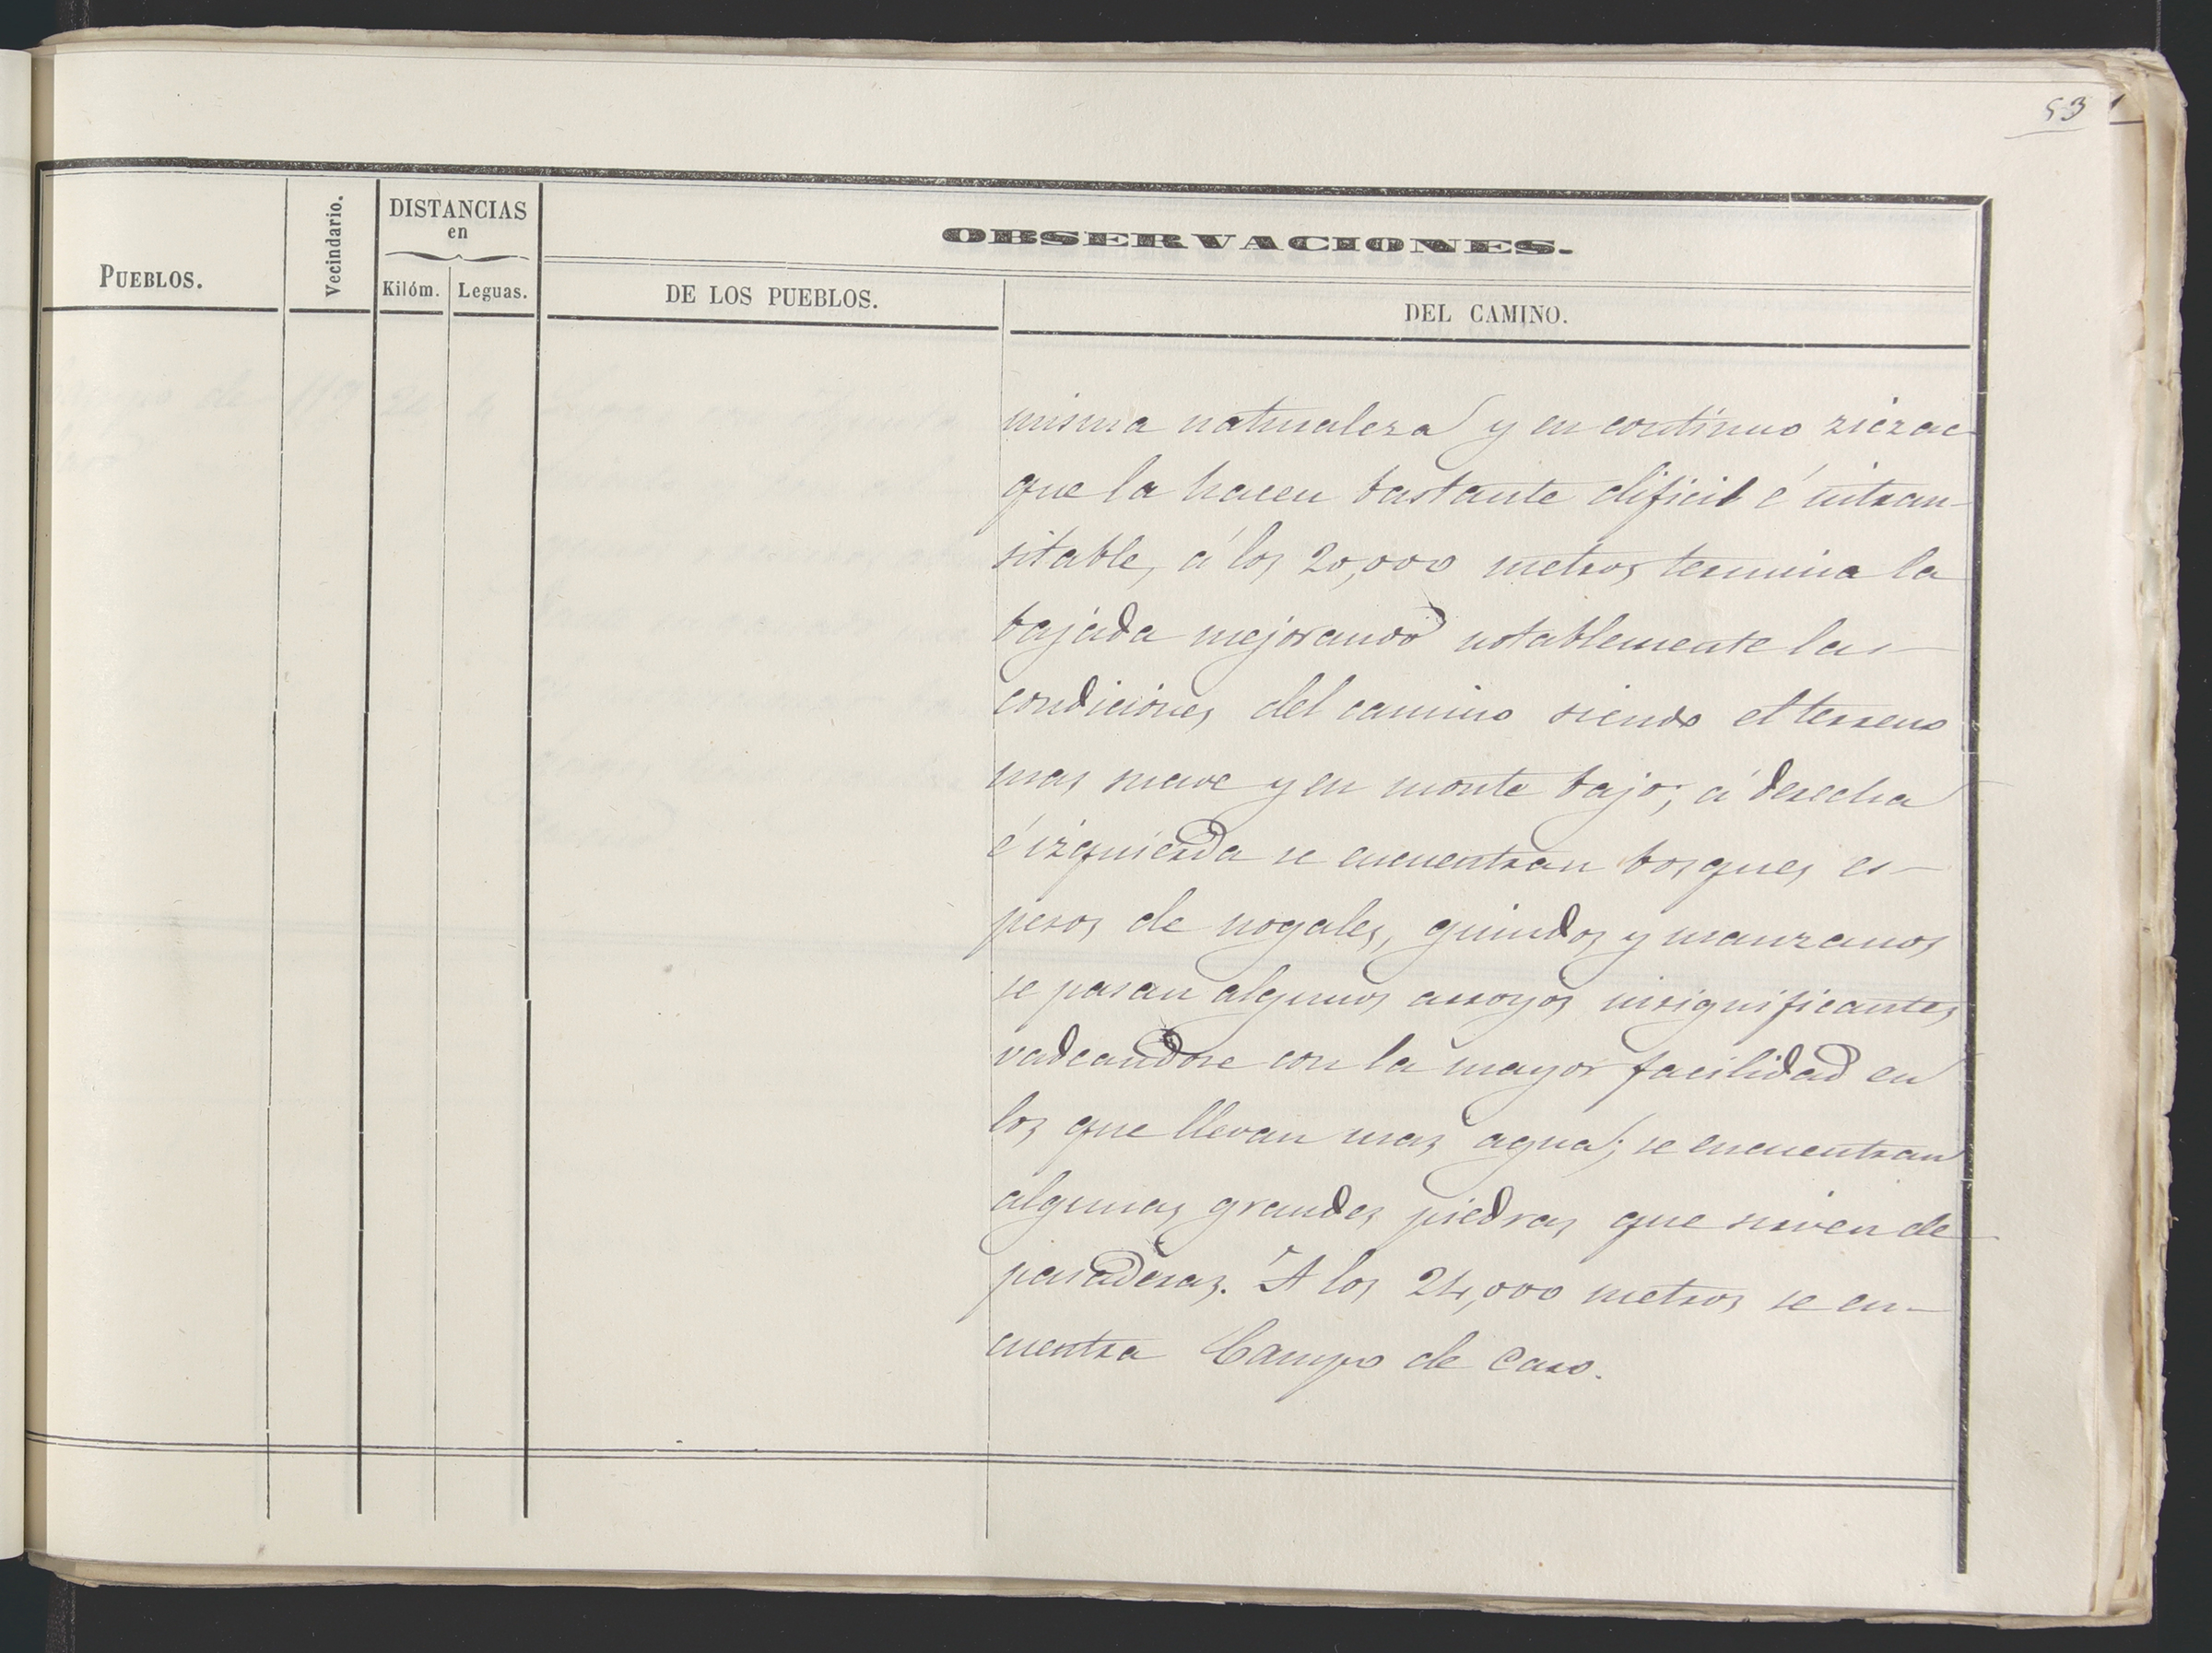 53
PUEBLOS.
Vecindario.
DISTANCIAS
en
Kilóm.
Leguas.
OBSERVACIONES.
DE LOS PUEBLOS.
DEL CAMINO.
misma naturaleza y en contínuo ziczac
que la hacen bastante dificil é intran-
sitable, á los 20,000 metros termina la
bajáda mejorando notablemente las
condiciónes del camino siendo el terreno
mas suave y en monte bajo; á derecha
é izquiérda se encuentran bosques es-
pesos de nogales, guindos y manzanos
se pasan algunos arroyos insignificantes
vadeandose con la mayor facilidad en
los que llevan mas agua; se encuentran
algunas grandes piedras que sirven de
pasaderas. A los 24,000 metros se en-
cuentra Campo de Caso.